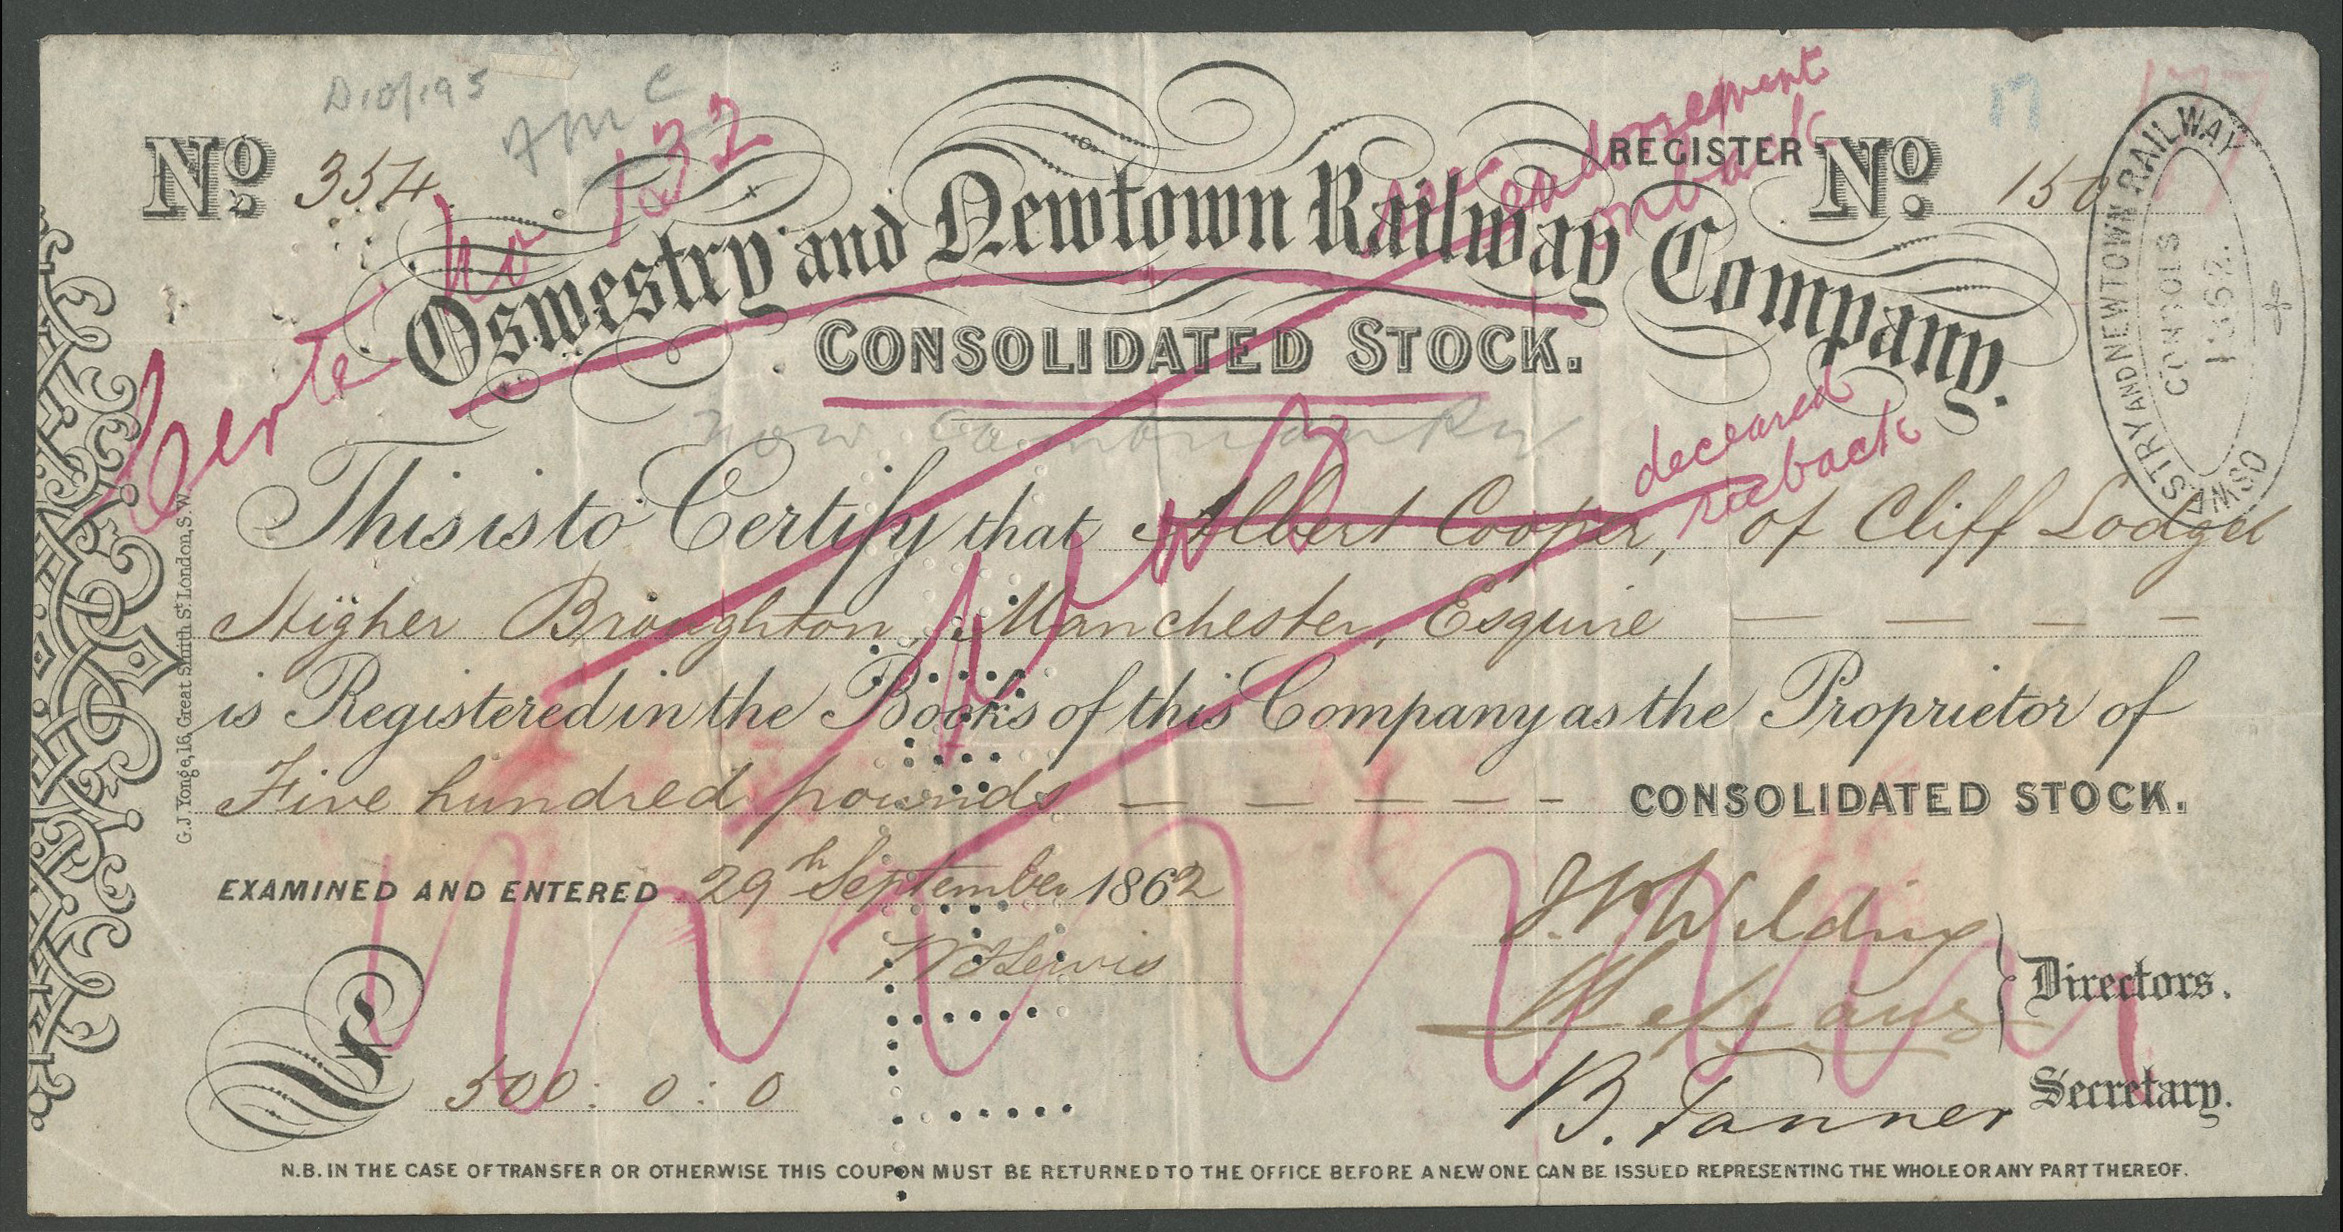 D10/195
No. 354.
REGISTER No. 150
Certe No 132
endorsement
on back
Oswestry and Newtown Railway Company.
CONSOLIDATED STOCK.
OSWESTRY AND NEWTOWN RAILWAY
CONSOLS
1862.
now Cambrian Ry
deceased
see back
This is to Certify that Albert Cooper, of Cliff Lodge
Higher Broughton, Manchester, Esquire — — — —
is Registered in the Books of this Company as the Proprietor of
Five hundred pounds — — — — — — CONSOLIDATED STOCK.
EXAMINED AND ENTERED 29th September 1862
Directors.
£ 500 : 0 : 0
B. Tanner Secretary.
N.B. IN THE CASE OF TRANSFER OR OTHERWISE THIS COUPON MUST BE RETURNED TO THE OFFICE BEFORE A NEW ONE CAN BE ISSUED REPRESENTING THE WHOLE OR ANY PART THEREOF.
G. J. Yonge, 16, Great Smith St. London, S.W.